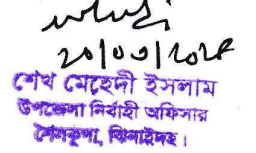 ২০/০৩/২০২৪
শেখ মেহেদী ইসলাম
উপজেলা নির্বাহী অফিসার
শৈলকুপা, ঝিনাইদহ।